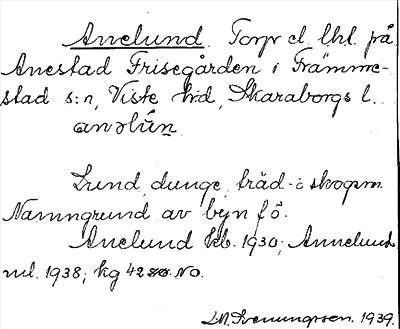 Anelund. Torp el. lhl. på
Anestad Frisegården i Främme-
stad s:n, Viste hd, Skaraborgs l.
Lund, dunge, träd- o skogsm.
Namngrund av byn fö.
Anelund kb. 1930; Annelund
ml. 1938; kg 42 NO.
1939.